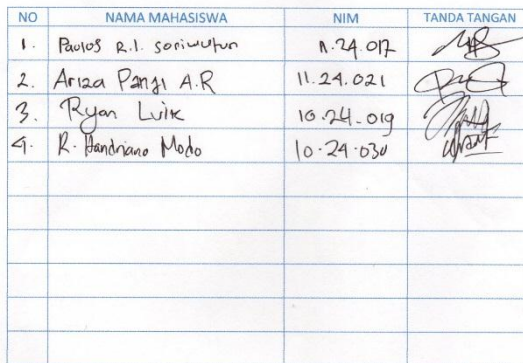 NO NAMA MAHASISWA NIM TANDA TANGAN
1. Paulos R.I. soriwutun 11.24.017
2. Ariza Panji A.R 11.24.021
3. Ryan Luik 10.24.019
4. R. Handriano Modo 10.24.030